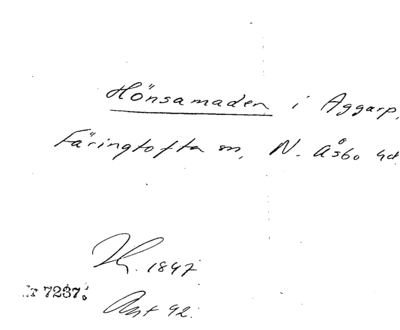 Hönsamaden i Aggarp,
Färingtofta sn, N. Åsbo hd.
Lh. 1847
7287.
Ant 42.